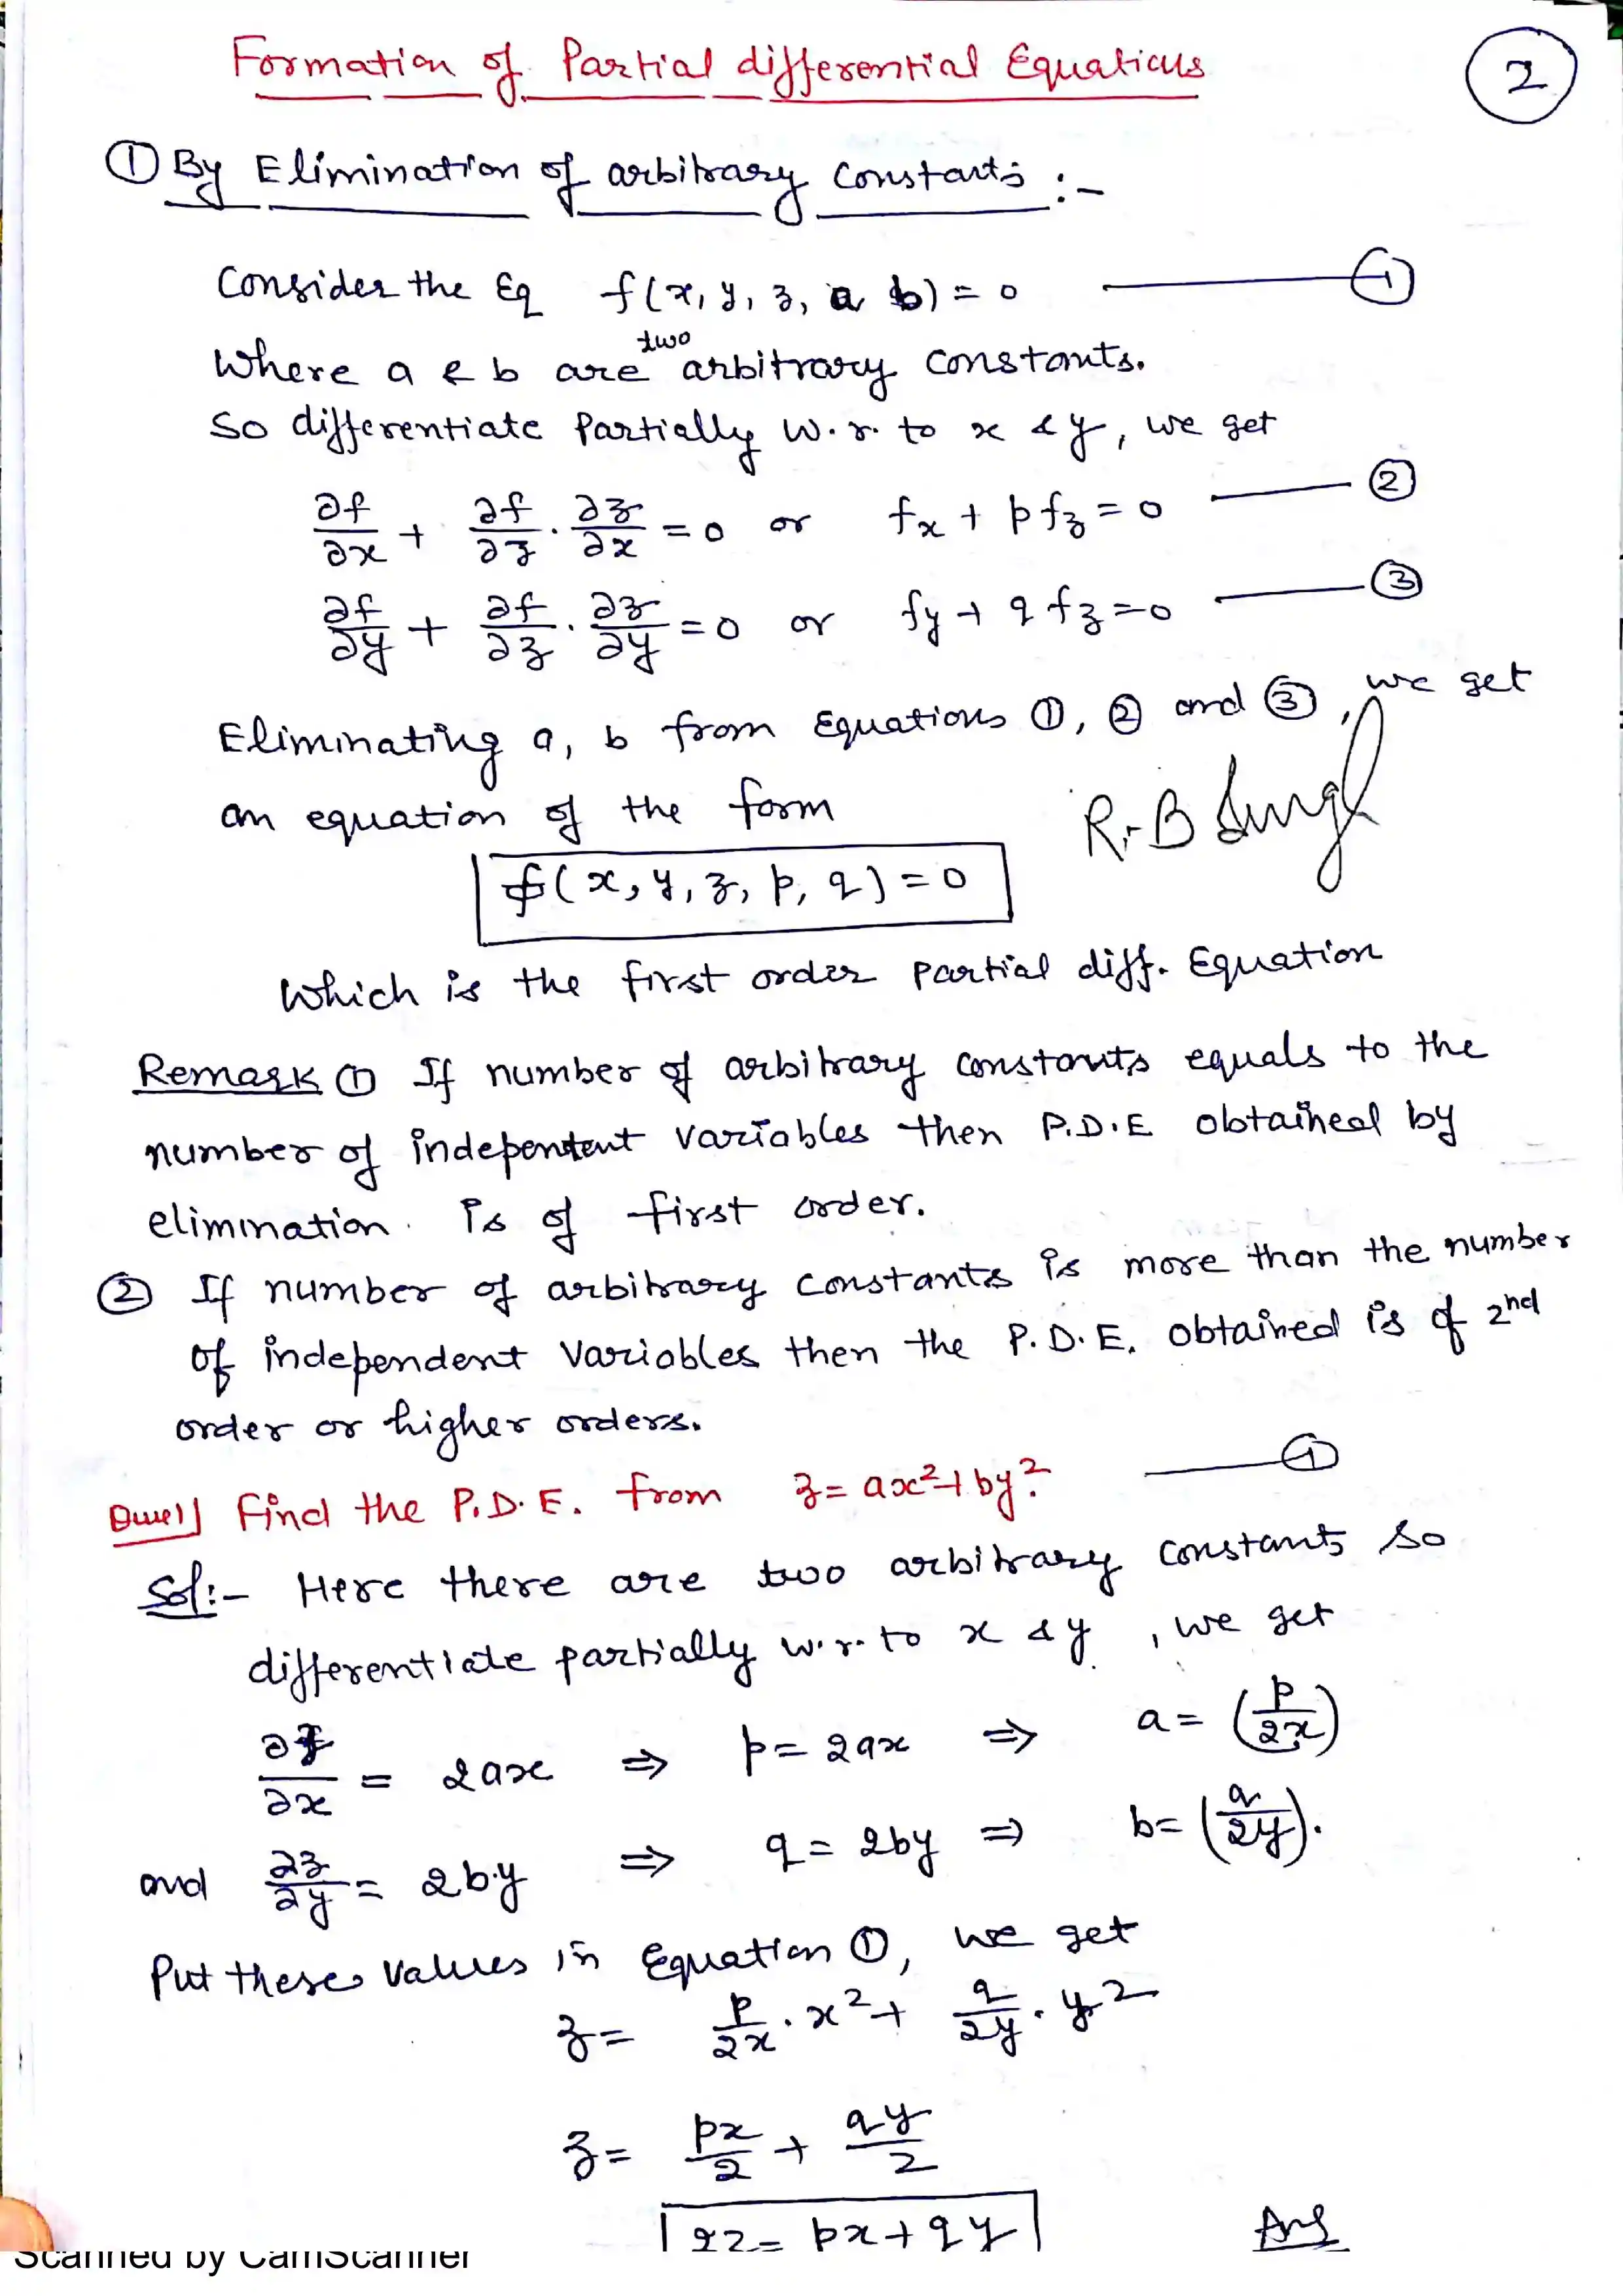 Formation of Partial differential Equations
2
① By Elimination of arbitrary constants :-
Consider the Eq f(x, y, z, a b) = 0 ——— ①
Where a & b are two arbitrary constants.
So differentiate Partially w.r. to x & y, we get
∂f/∂x + ∂f/∂z · ∂z/∂x = 0 or fx + p fz = 0 ——— ②
∂f/∂y + ∂f/∂z · ∂z/∂y = 0 or fy + q fz = 0 ——— ③
Eliminating a, b from Equations ①, ② and ③, we get
an equation of the form
R.B Singh
f(x, y, z, p, q) = 0
Which is the first order partial diff. Equation
Remark ① If number of arbitrary constants equals to the
number of independent variables then P.D.E obtained by
elimination is of first order.
② If number of arbitrary constants is more than the number
of independent variables then the P.D.E. obtained is of 2nd
order or higher orders.
Que1) Find the P.D.E. from z = ax² + by². ——— ①
Sol:- Here there are two arbitrary constants so
differentiate partially w.r. to x & y, we get
∂z/∂x = 2ax ⇒ p = 2ax ⇒ a = (p/2x)
and ∂z/∂y = 2by ⇒ q = 2by ⇒ b = (q/2y).
Put these values in Equation ①, we get
z = p/2x · x² + q/2y · y²
z = px/2 + qy/2
2z = px + qy Ans
Scanned by CamScanner